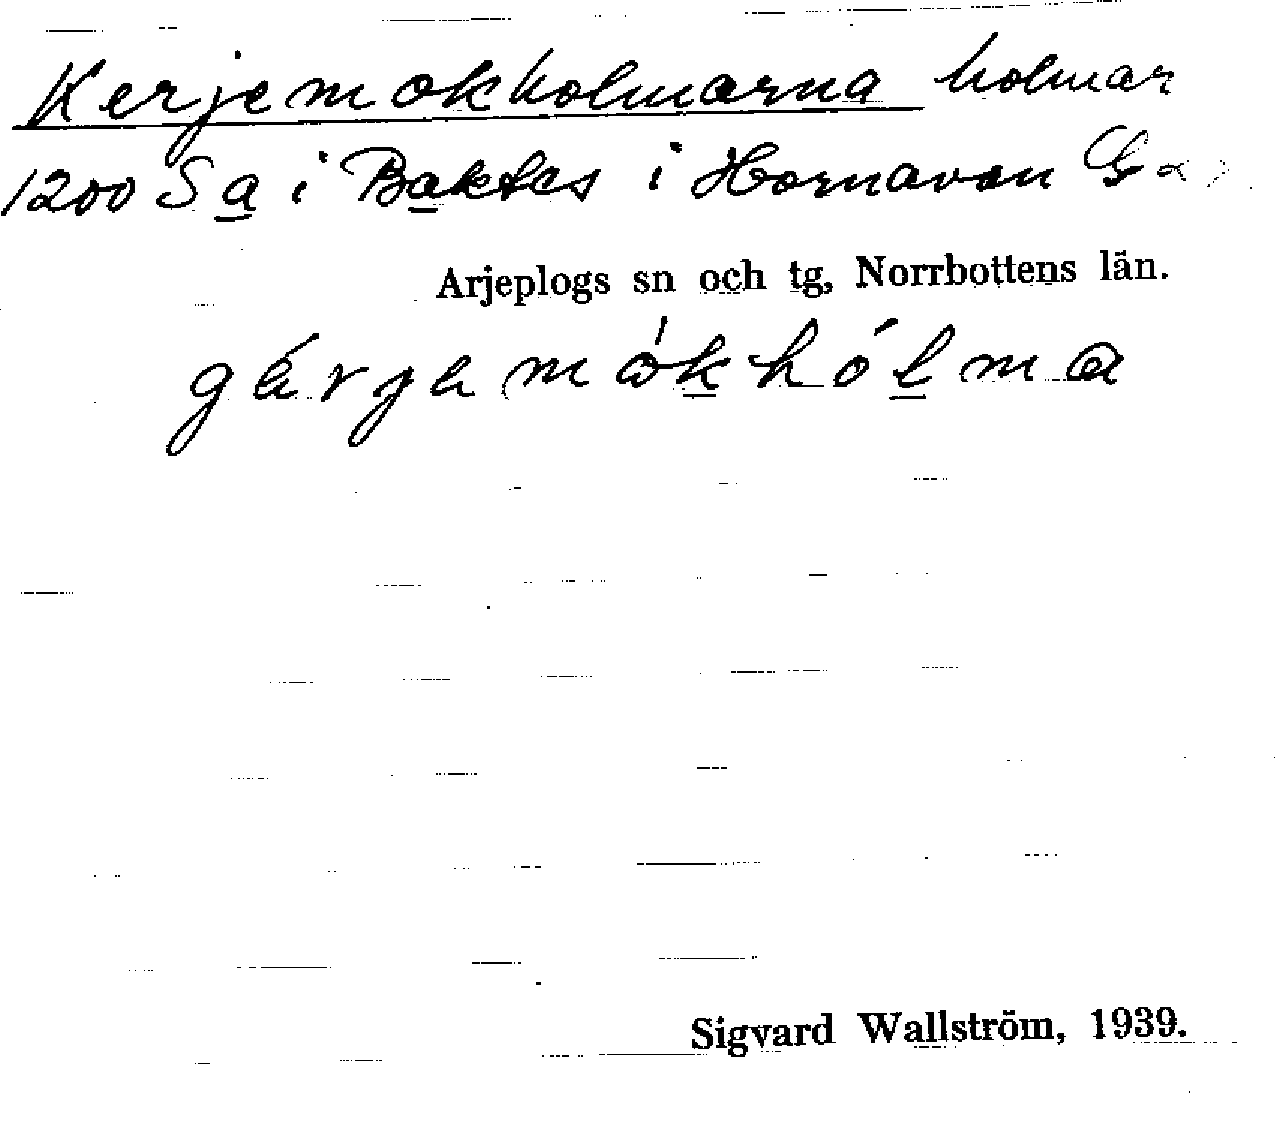 Kerjemokholmarna holmar
1200 Sa i Baktes i Hornavan
Arjeplogs sn och tg, Norrbottens län.
Sigvard Wallström, 1939.